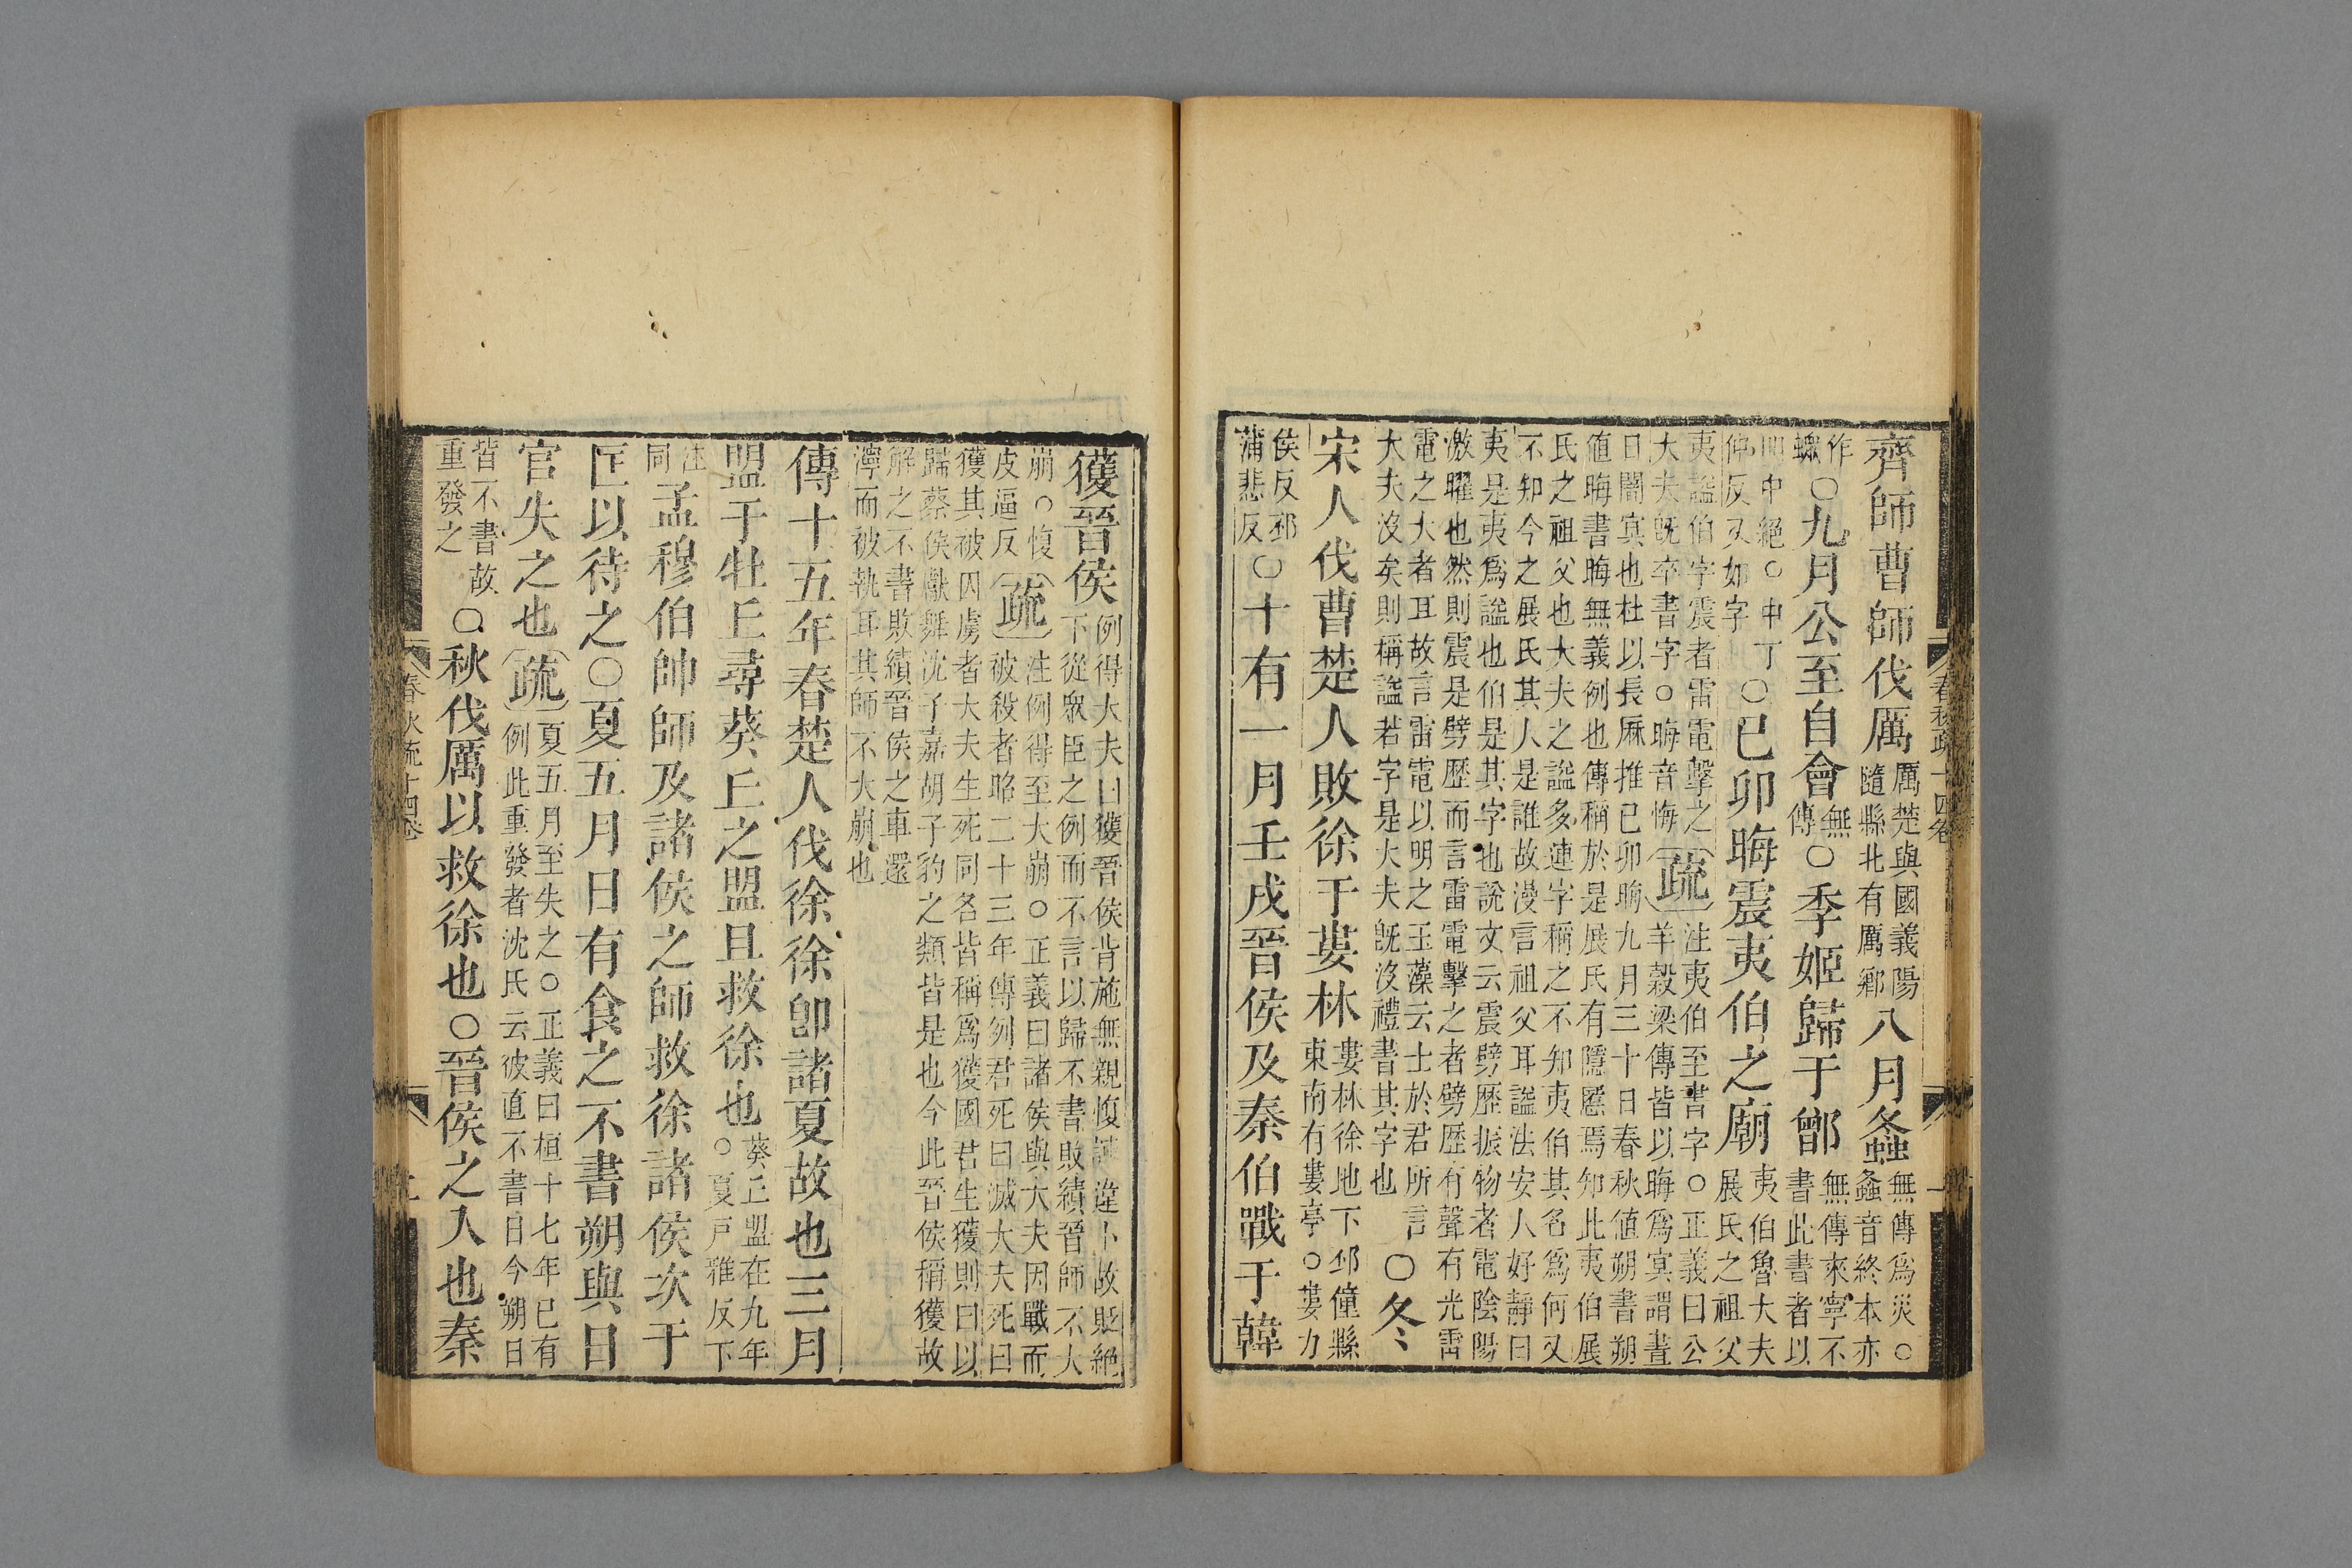 齊師曹師伐厲厲楚與國義陽隨縣北有厲鄉八月螽無傳爲災○螽音終本亦
作蠑○九月公至自會無傳○季姬歸于鄫無傳來寧不書此書者以
明中絕○中丁仲反又如字○己卯晦震夷伯之廟夷伯魯大夫展氏之祖父
夷謚伯字震者雷電擊之大夫旣卒書字○晦音悔疏注夷伯至書字○正義曰公羊穀梁傳皆以晦爲冥謂晝
日闇冥也杜以長厤推己卯晦九月三十日春秋値朔書朔値晦書晦無義例也傳稱於是展氏有隱慝焉知此夷伯展
氏之祖父也大夫之謚多連字稱之不知夷伯其名爲何又不知今之展氏其人是誰故漫言祖父耳謚法安人好靜曰
夷是夷爲謚也伯是其字也說文云震劈歷振物者電陰陽激曜也然則震是劈歷而言雷電擊之者劈歷有聲有光雷
電之大者耳故言雷電以明之玉藻云士於君所言大夫沒矣則稱謚若字是大夫旣沒禮書其字也○冬
宋人伐曹楚人敗徐于婁林婁林徐地下邳僮縣東南有婁亭○婁力
侯反邳蒲悲反○十有一月壬戌晉侯及秦伯戰于韓
獲晉侯例得大夫曰獲晉侯背施無親愎諫違卜故貶絕下從眾臣之例而不言以歸不書敗績晉師不大
崩○愎皮逼反疏注例得至大崩○正義曰諸侯與大夫因戰而被殺者昭二十三年傳例君死曰滅大夫死曰
獲其被囚虜者大夫生死同名皆稱爲獲國君生獲則曰以歸蔡侯獻舞沈子嘉胡子豹之類皆是也今此晉侯稱獲故
解之不書敗績晉侯之車還濘而被執耳其師不大崩也
傳十五年春楚人伐徐徐卽諸夏故也三月
盟于牡丘尋葵丘之盟且救徐也葵丘盟在九年○夏戸雅反下
注同孟穆伯帥師及諸侯之師救徐諸侯次于
匡以待之○夏五月日有食之不書朔與日
官失之也疏夏五月至失之○正義曰桓十七年已有例此重發者沈氏云彼直不書日今朔日
皆不書故重發之○秋伐厲以救徐也○晉侯之入也秦